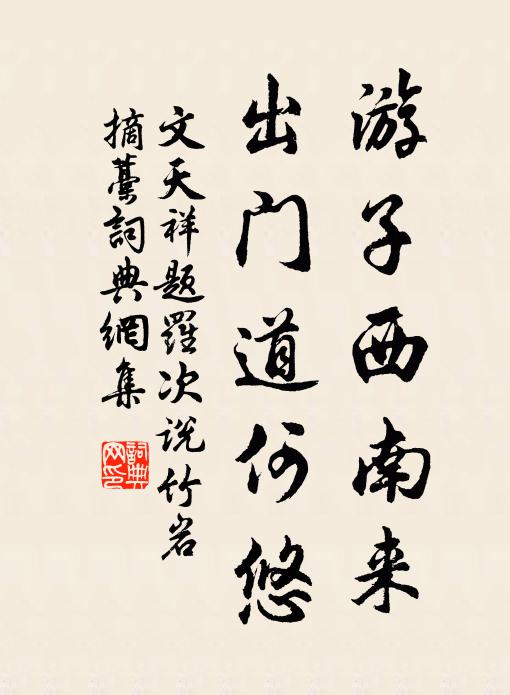 游子西南来
出门道何悠
文天祥题羅次说竹岩
摘藁詞典網集
詞典
网印